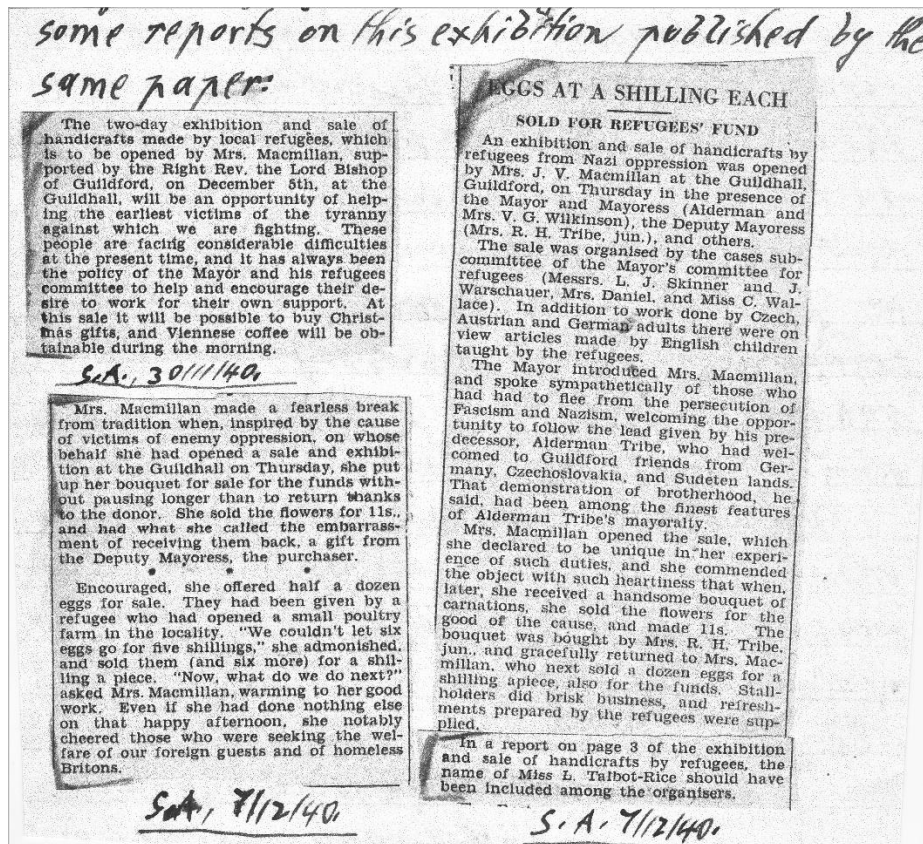 some reports on this exhibition published by the
same paper:
The two-day exhibition and sale of
handicrafts made by local refugees, which
is to be opened by Mrs. Macmillan, sup-
ported by the Right Rev. the Lord Bishop
of Guildford, on December 5th, at the
Guildhall, will be an opportunity of help-
ing the earliest victims of the tyranny
against which we are fighting. These
people are facing considerable difficulties
at the present time, and it has always been
the policy of the Mayor and his refugees
committee to help and encourage their de-
sire to work for their own support. At
this sale it will be possible to buy Christ-
mas gifts, and Viennese coffee will be ob-
tainable during the morning.
S.A., 30/11/40.
Mrs. Macmillan made a fearless break
from tradition when, inspired by the cause
of victims of enemy oppression, on whose
behalf she had opened a sale and exhibi-
tion at the Guildhall on Thursday, she put
up her bouquet for sale for the funds with-
out pausing longer than to return thanks
to the donor. She sold the flowers for 11s.,
and had what she called the embarrass-
ment of receiving them back, a gift from
the Deputy Mayoress, the purchaser.
• • •
Encouraged, she offered half a dozen
eggs for sale. They had been given by a
refugee who had opened a small poultry
farm in the locality. "We couldn't let six
eggs go for five shillings," she admonished,
and sold them (and six more) for a shil-
ling a piece. "Now, what do we do next?"
asked Mrs. Macmillan, warming to her good
work. Even if she had done nothing else
on that happy afternoon, she notably
cheered those who were seeking the wel-
fare of our foreign guests and of homeless
Britons.
S.A., 7/12/40.
EGGS AT A SHILLING EACH
SOLD FOR REFUGEES' FUND
An exhibition and sale of handicrafts by
refugees from Nazi oppression was opened
by Mrs. J. V. Macmillan at the Guildhall,
Guildford, on Thursday in the presence of
the Mayor and Mayoress (Alderman and
Mrs. V. G. Wilkinson), the Deputy Mayoress
(Mrs. R. H. Tribe, jun.), and others.
The sale was organised by the cases sub-
committee of the Mayor's committee for
refugees (Messrs. L. J. Skinner and J.
Warschauer, Mrs. Daniel, and Miss C. Wal-
lace). In addition to work done by Czech,
Austrian and German adults there were on
view articles made by English children
taught by the refugees.
The Mayor introduced Mrs. Macmillan,
and spoke sympathetically of those who
had had to flee from the persecution of
Fascism and Nazism, welcoming the oppor-
tunity to follow the lead given by his pre-
decessor, Alderman Tribe, who had wel-
comed to Guildford friends from Ger-
many, Czechoslovakia, and Sudeten lands.
That demonstration of brotherhood, he
said, had been among the finest features
of Alderman Tribe's mayoralty.
Mrs. Macmillan opened the sale, which
she declared to be unique in her experi-
ence of such duties, and she commended
the object with such heartiness that when,
later, she received a handsome bouquet of
carnations, she sold the flowers for the
good of the cause, and made 11s. The
bouquet was bought by Mrs. R. H. Tribe,
jun., and gracefully returned to Mrs. Mac-
millan, who next sold a dozen eggs for a
shilling apiece, also for the funds. Stall-
holders did brisk business, and refresh-
ments prepared by the refugees were sup-
plied.
In a report on page 3 of the exhibition
and sale of handicrafts by refugees, the
name of Miss L. Talbot-Rice should have
been included among the organisers.
S.A. 7/12/40.